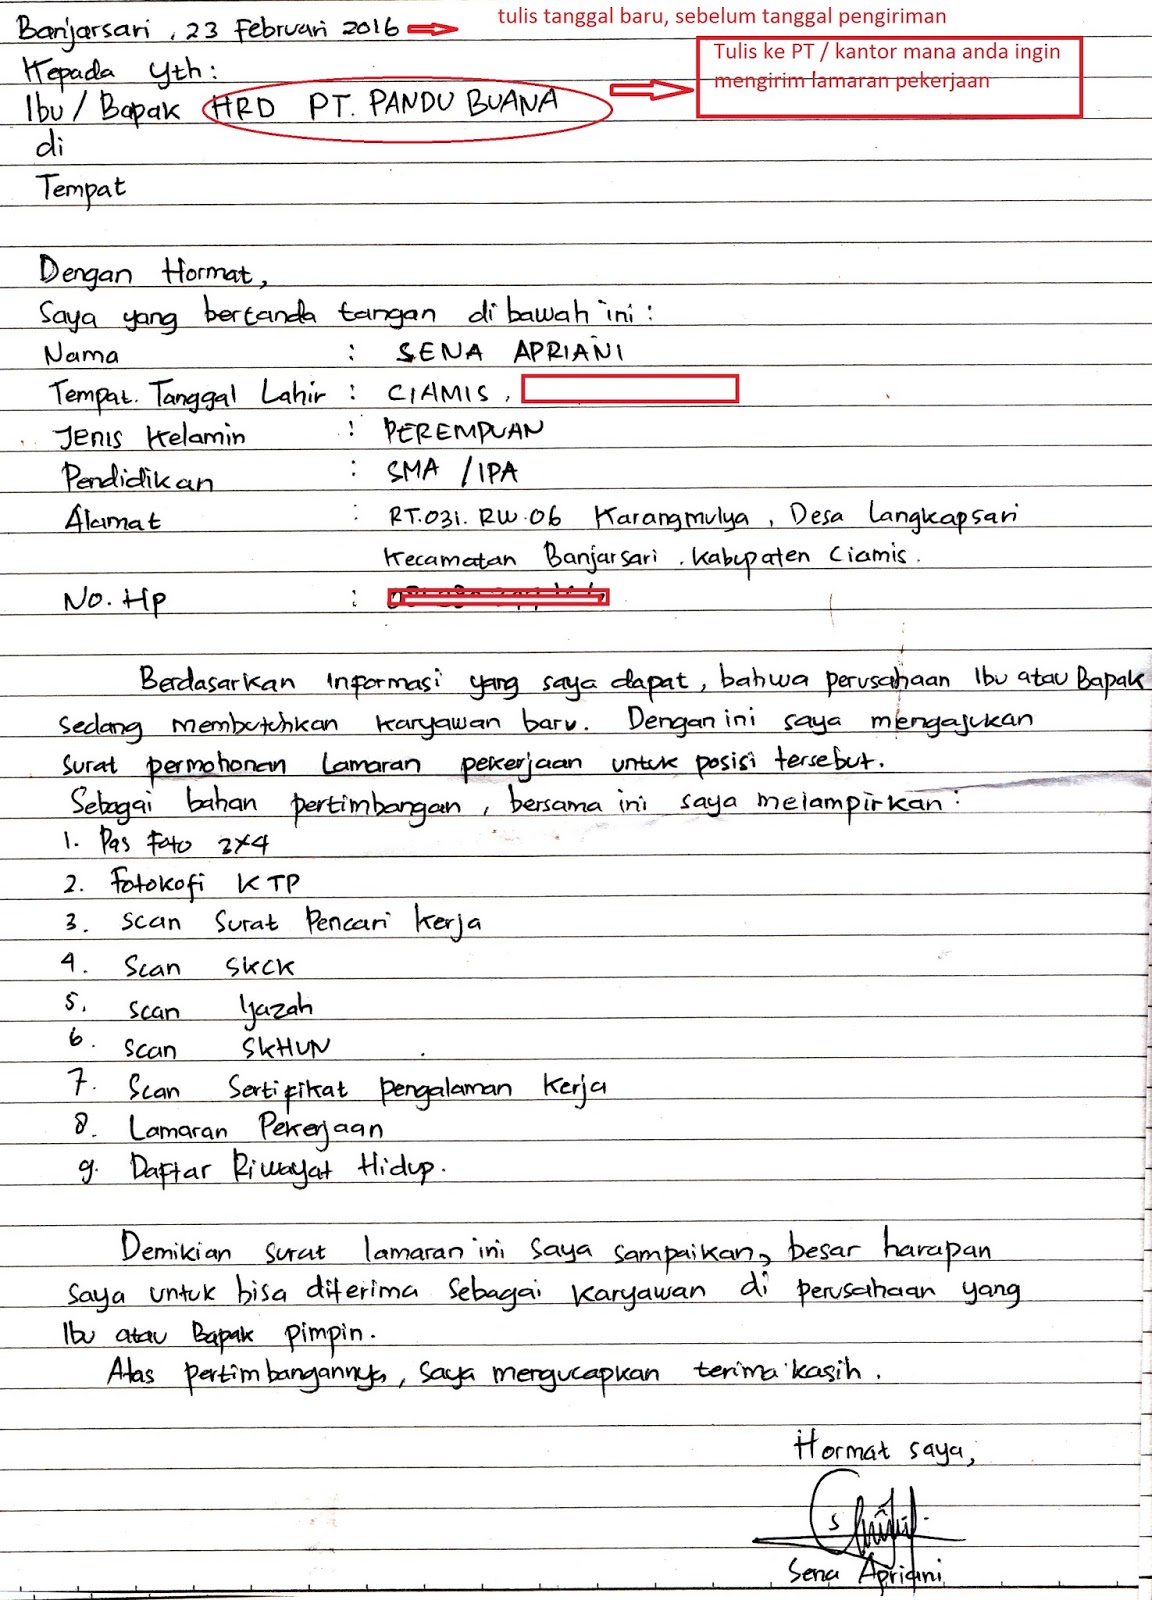 Banjarsari, 23 Februari 2016
tulis tanggal baru, sebelum tanggal pengiriman
Kepada Yth:
Tulis ke PT / kantor mana anda ingin
mengirim lamaran pekerjaan
Ibu / Bapak HRD PT. PANDU BUANA
di
Tempat
Dengan Hormat,
Saya yang bertanda tangan di bawah ini :
Nama : SENA APRIANI
Tempat. Tanggal Lahir : CIAMIS,
Jenis Kelamin : PEREMPUAN
Pendidikan : SMA / IPA
Alamat : RT.031. RW.06 Karangmulya, Desa Langkapsari
Kecamatan Banjarsari. Kabupaten Ciamis.
No. Hp :
Berdasarkan informasi yang saya dapat, bahwa perusahaan Ibu atau Bapak
sedang membutuhkan karyawan baru. Dengan ini saya mengajukan
surat permohonan lamaran pekerjaan untuk posisi tersebut.
Sebagai bahan pertimbangan, bersama ini saya melampirkan :
1. Pas Foto 3x4
2. Fotokofi KTP
3. scan Surat Pencari Kerja
4. Scan SKCK
5. scan Ijazah
6. scan SKHUN
7. Scan Sertifikat pengalaman Kerja
8. Lamaran Pekerjaan
9. Daftar Riwayat Hidup.
Demikian surat lamaran ini saya sampaikan, besar harapan
saya untuk bisa diterima sebagai karyawan di perusahaan yang
Ibu atau Bapak pimpin.
Atas pertimbangannya, saya mengucapkan terima kasih.
Hormat saya,
Sena Apriani